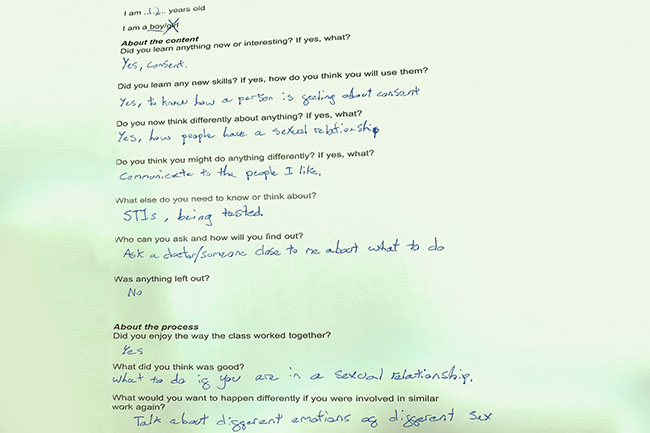 I am ..12.. years old
I am a boy/girl
About the content
Did you learn anything new or interesting? If yes, what?
Yes, consent.
Did you learn any new skills? If yes, how do you think you will use them?
Yes, to know how a person is feeling about consent
Do you now think differently about anything? If yes, what?
Yes, how people have a sexual relationship
Do you think you might do anything differently? If yes, what?
Communicate to the people I like.
What else do you need to know or think about?
STIs, being tested.
Who can you ask and how will you find out?
Ask a doctor/someone close to me about what to do
Was anything left out?
No
About the process
Did you enjoy the way the class worked together?
Yes
What did you think was good?
What to do if you are in a sexual relationship.
What would you want to happen differently if you were involved in similar
work again?
Talk about different emotions of different sex